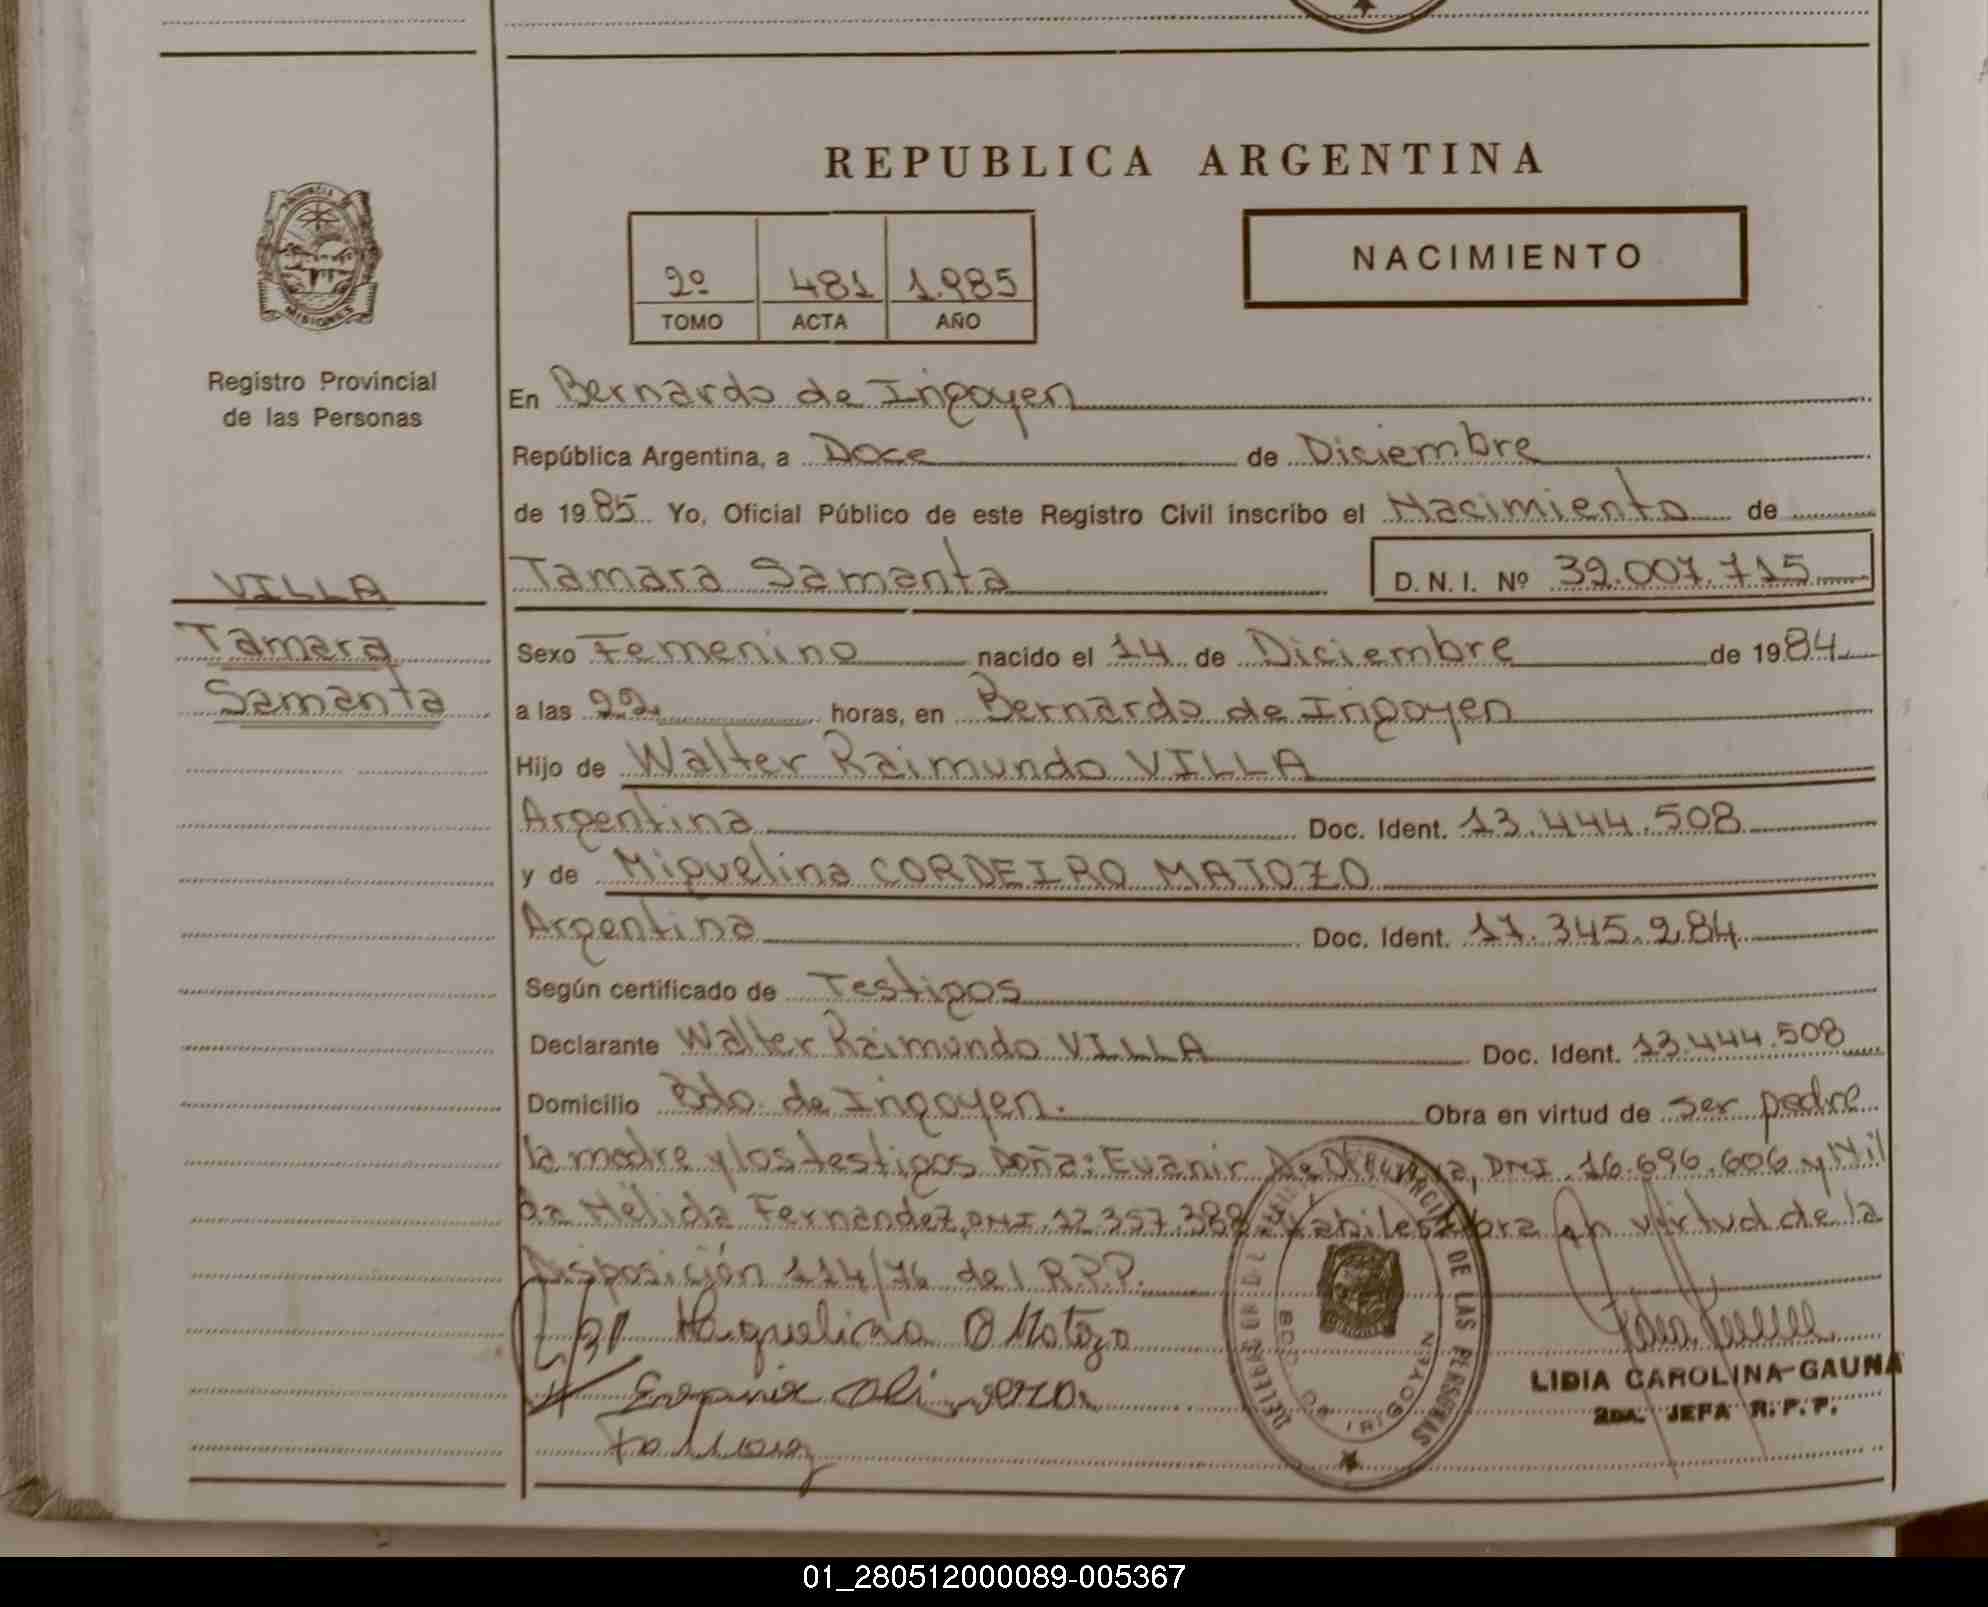 REPUBLICA ARGENTINA
NACIMIENTO
2º 481 1.985
TOMO ACTA AÑO
PROVINCIA
MISIONES
Registro Provincial
de las Personas
VILLA
Tamara
Samanta
En Bernardo de Irigoyen
República Argentina, a Doce de Diciembre
de 1985 Yo, Oficial Público de este Registro Civil inscribo el Nacimiento de
Tamara Samanta D. N. I. Nº 39.007.715
Sexo Femenino nacido el 14 de Diciembre de 1984
a las 22 horas, en Bernardo de Irigoyen
Hijo de Walter Raimundo VILLA
Argentina Doc. Ident. 13.444.508
y de Miguelina CORDEIRO MATOZO
Argentina Doc. Ident. 17.345.284
Según certificado de Testigos
Declarante Walter Raimundo VILLA Doc. Ident. 13.444.508
Domicilio Bdo. de Irigoyen. Obra en virtud de ser padre
la madre y los testigos Doña: Evanir De , DNI. 16.696.606 y Nil
da Nélida Fernandez, DNI. 12.357.388 habiles obra en virtud de la
Disposición 114/76 del R.P.P.
Matozo
LIDIA CAROLINA GAUNA
2da. JEFA R.P.P.
DE LAS PERSONAS
BDO. DE IRIGOYEN
01_280512000089-005367